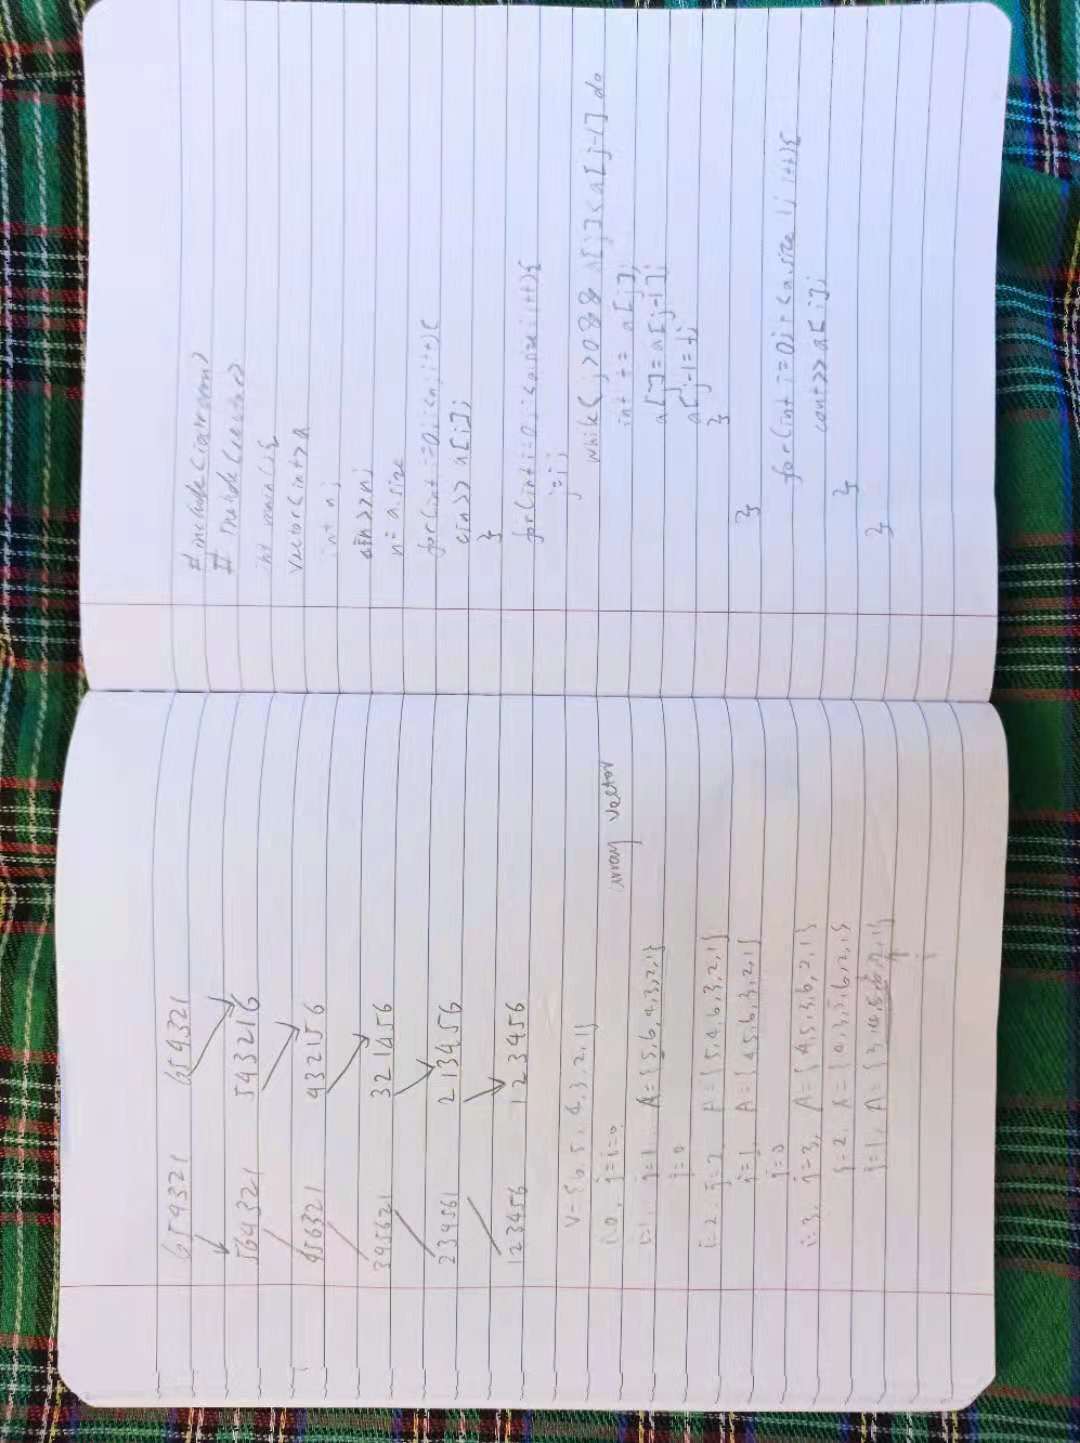 654321 654321
564321 543216
456321 432156
345621 321456
234561 213456
123456 123456
V={6,5,4,3,2,1}
i=0, j=i=0 array vector
i=1. j=1. A={5,6,4,3,2,1}
j=0
i=2. j=2 A={5,4,6,3,2,1}
j=1, A={4,5,6,3,2,1}
j=0
i=3, j=3, A={4,5,3,6,2,1}
j=2, A={4,3,5,6,2,1}
j=1, A={3,4,5,6,2,1}
#include<iostream>
# include<vector>
int main(){
vector<int>a
int n;
cin>>n;
n=a.size
for(int i=0;i<n;i++){
cin>>a[i];
}
for(int i=0;i<a.size;i++){
j=i;
while(j>0&&a[j]<a[j-1] do
int t=a[j];
a[j]=a[j-1];
a[j-1=t;
}
}
for(int i=0;i<a.size);i++){
cout>>a[i];
}
}